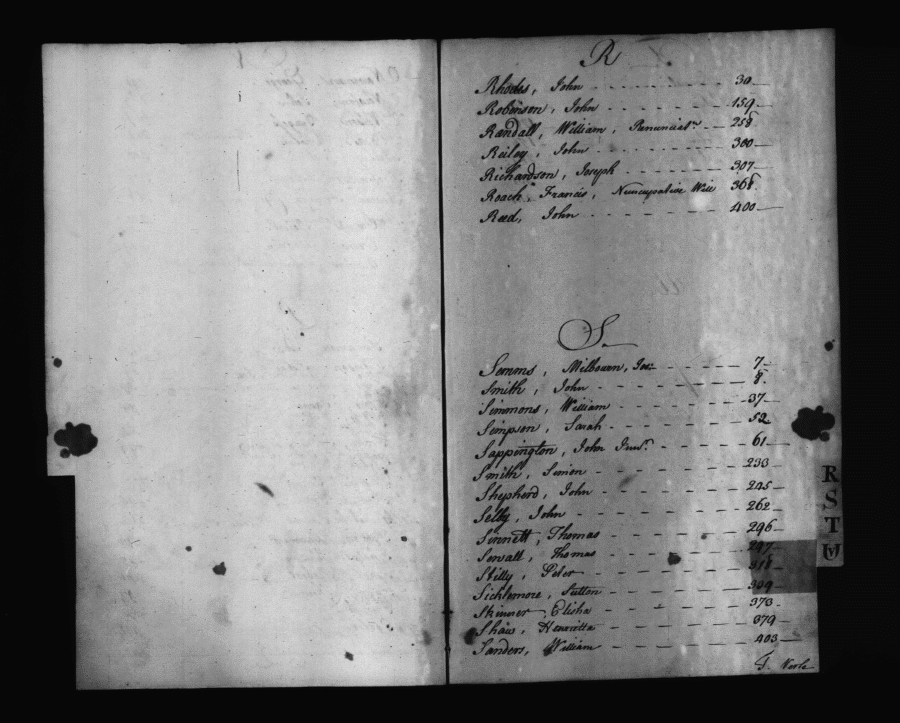 R
Rhodes, John - - - - - - - 30
Robinson, John - - - - - - - 159
Randall, William, Renunciatn. - - 258
Reiley, John - - - - - - - 300
Richardson, Joseph - - - - - 307
Roach, Francis, Nuncupative Will 368
Reed, John - - - - - - - 400
S
Semms, Milbourn, - - - - 7
Smith, John - - - - - - - 8
Simmons, William - - - - - 37
Simpson, Sarah - - - - - - 52
Sappington, John Junr. - - - - 61
Smith, Simon - - - - - - - 233
Shepherd, John - - - - - - 245
Selby, John - - - - - - - 262
Sinnett, Thomas - - - - - - 296
Sewall, Thomas - - - - - - 297
Stilly, Peter - - - - - - - 318
Sicklemore, Sutton - - - - - 339
Skinner, Elisha - - - - - - 373
Shaw, Henrietta - - - - - - 379
Sanders, William - - - - - - 403
T.
R
S
T
UV